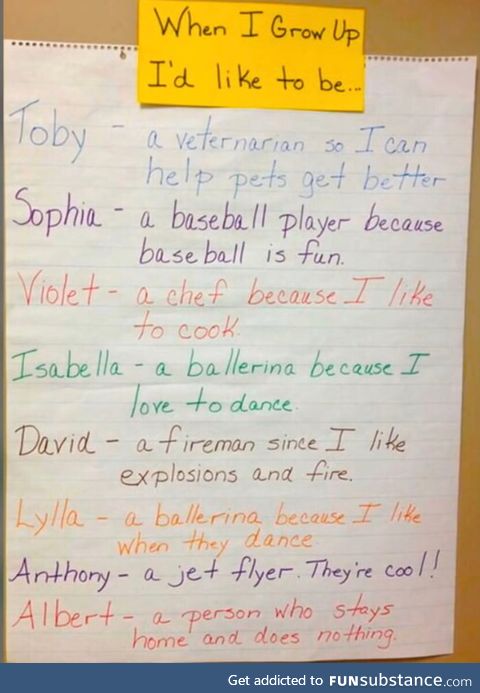 When I Grow Up
I'd like to be...
Toby - a veternarian so I can
help pets get better
Sophia - a baseball player because
baseball is fun.
Violet - a chef because I like
to cook.
Isabella - a ballerina because I
love to dance.
David - a fireman since I like
explosions and fire.
Lylla - a ballerina because I like
when they dance.
Anthony - a jet flyer. They're cool!
Albert - a person who stays
home and does nothing.
Get addicted to FUNsubstance.com